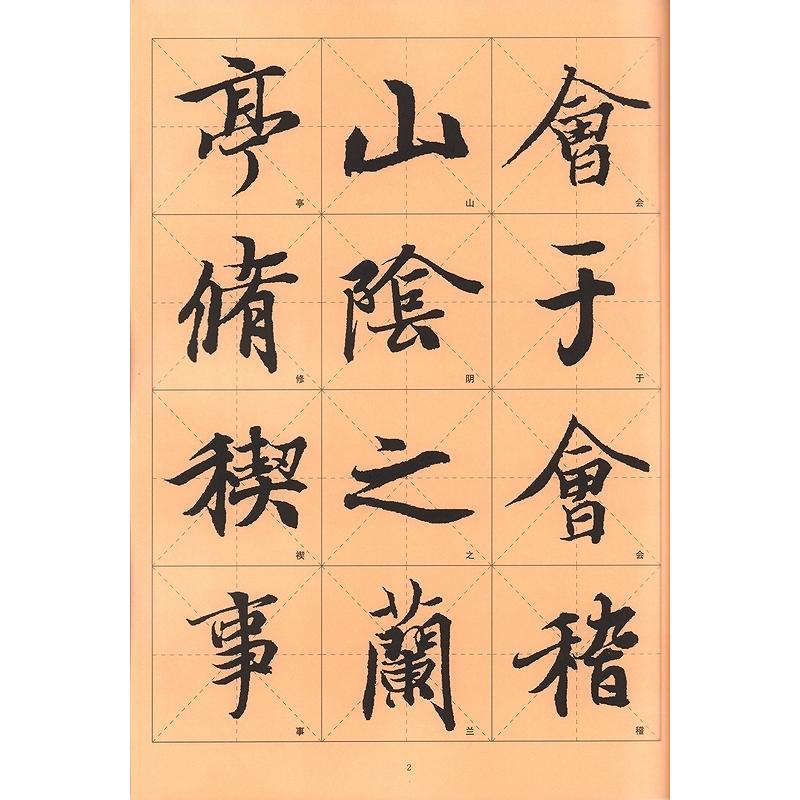 會于會稽
会于会稽
山陰之蘭
山阴之兰
亭脩稧事
亭修禊事
2